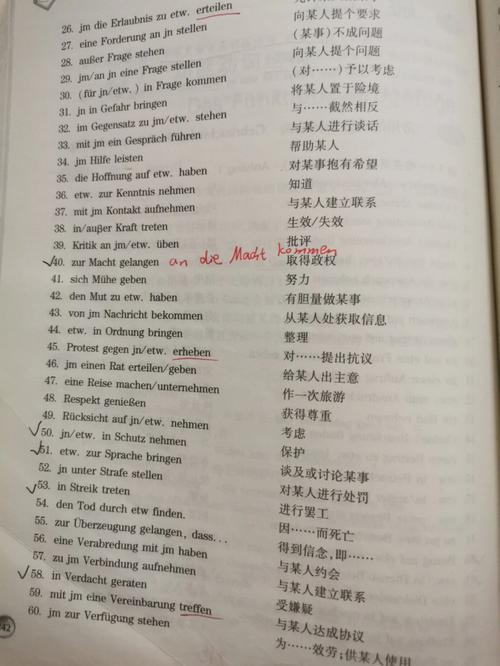 26. jm die Erlaubnis zu etw. erteilen
27. eine Forderung an jn stellen 向某人提个要求
28. außer Frage stehen (某事)不成问题
29. jm/an jn eine Frage stellen 向某人提个问题
30. (für jn/etw.) in Frage kommen (对……)予以考虑
31. jn in Gefahr bringen 将某人置于险境
32. im Gegensatz zu jm/etw. stehen 与……截然相反
33. mit jm ein Gespräch führen 与某人进行谈话
34. jm Hilfe leisten 帮助某人
35. die Hoffnung auf etw. haben 对某事抱有希望
36. etw. zur Kenntnis nehmen 知道
37. mit jm Kontakt aufnehmen 与某人建立联系
38. in/außer Kraft treten 生效/失效
39. Kritik an jm/etw. üben 批评
√40. zur Macht gelangen an die Macht kommen 取得政权
41. sich Mühe geben 努力
42. den Mut zu etw. haben 有胆量做某事
43. von jm Nachricht bekommen 从某人处获取信息
44. etw. in Ordnung bringen 整理
45. Protest gegen jn/etw. erheben 对……提出抗议
46. jm einen Rat erteilen/geben 给某人出主意
47. eine Reise machen/unternehmen 作一次旅游
48. Respekt genießen 获得尊重
49. Rücksicht auf jn/etw. nehmen 考虑
√50. jn/etw. in Schutz nehmen 保护
√51. etw. zur Sprache bringen 谈及或讨论某事
52. jn unter Strafe stellen 对某人进行处罚
√53. in Streik treten 进行罢工
54. den Tod durch etw finden. 因……而死亡
55. zur Überzeugung gelangen, dass... 得到信念,即……
56. eine Verabredung mit jm haben 与某人约会
57. zu jm Verbindung aufnehmen 与某人建立联系
√58. in Verdacht geraten 受嫌疑
59. mit jm eine Vereinbarung treffen 与某人达成协议
60. jm zur Verfügung stehen 为……效劳;供某人使用